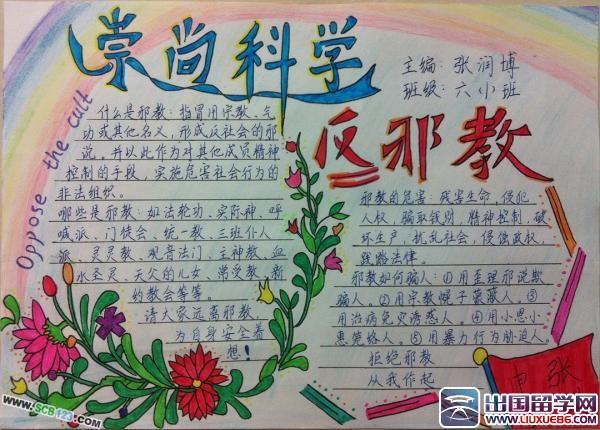 崇尚科学
主编：张润博
班级：六小班
Oppose the cult
反邪教
什么是邪教：指冒用宗教、气
功或其他名义，形成反社会的邪
说。并以此作为对其他成员精神
控制的手段，实施危害社会行为的
非法组织。
哪些是邪教：如法轮功、实际神、呼
喊派、门徒会、统一教、三班仆人
派、灵灵教、观音法门、主神教、血
水圣灵、天父的儿女、常受教、新
约教会等等。
请大家远离邪教，
为自身安全着
想！
邪教的危害：残害生命，侵犯
人权，骗取钱财，精神控制，破
坏生产，扰乱社会，侵蚀政权，
践踏法律。
邪教如何骗人：①用歪理邪说欺
骗人。②用宗教幌子蒙蔽人。③
用治病免灾诱惑人。④用小恩小
惠笼络人。⑤用暴力行为胁迫人。
拒绝邪教
从我作起
张
www.SCB123.com
出国留学网
www.LIUXUE86.com